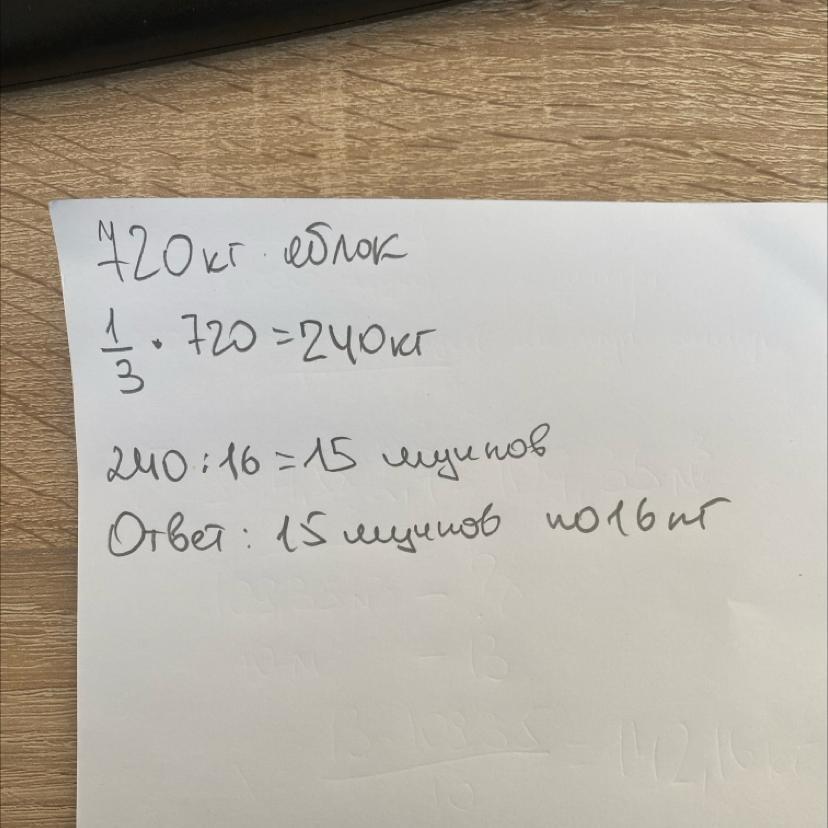 720кг яблок
1/3 · 720 = 240кг
240 : 16 = 15 ящиков
Ответ: 15 ящиков по 16 кг